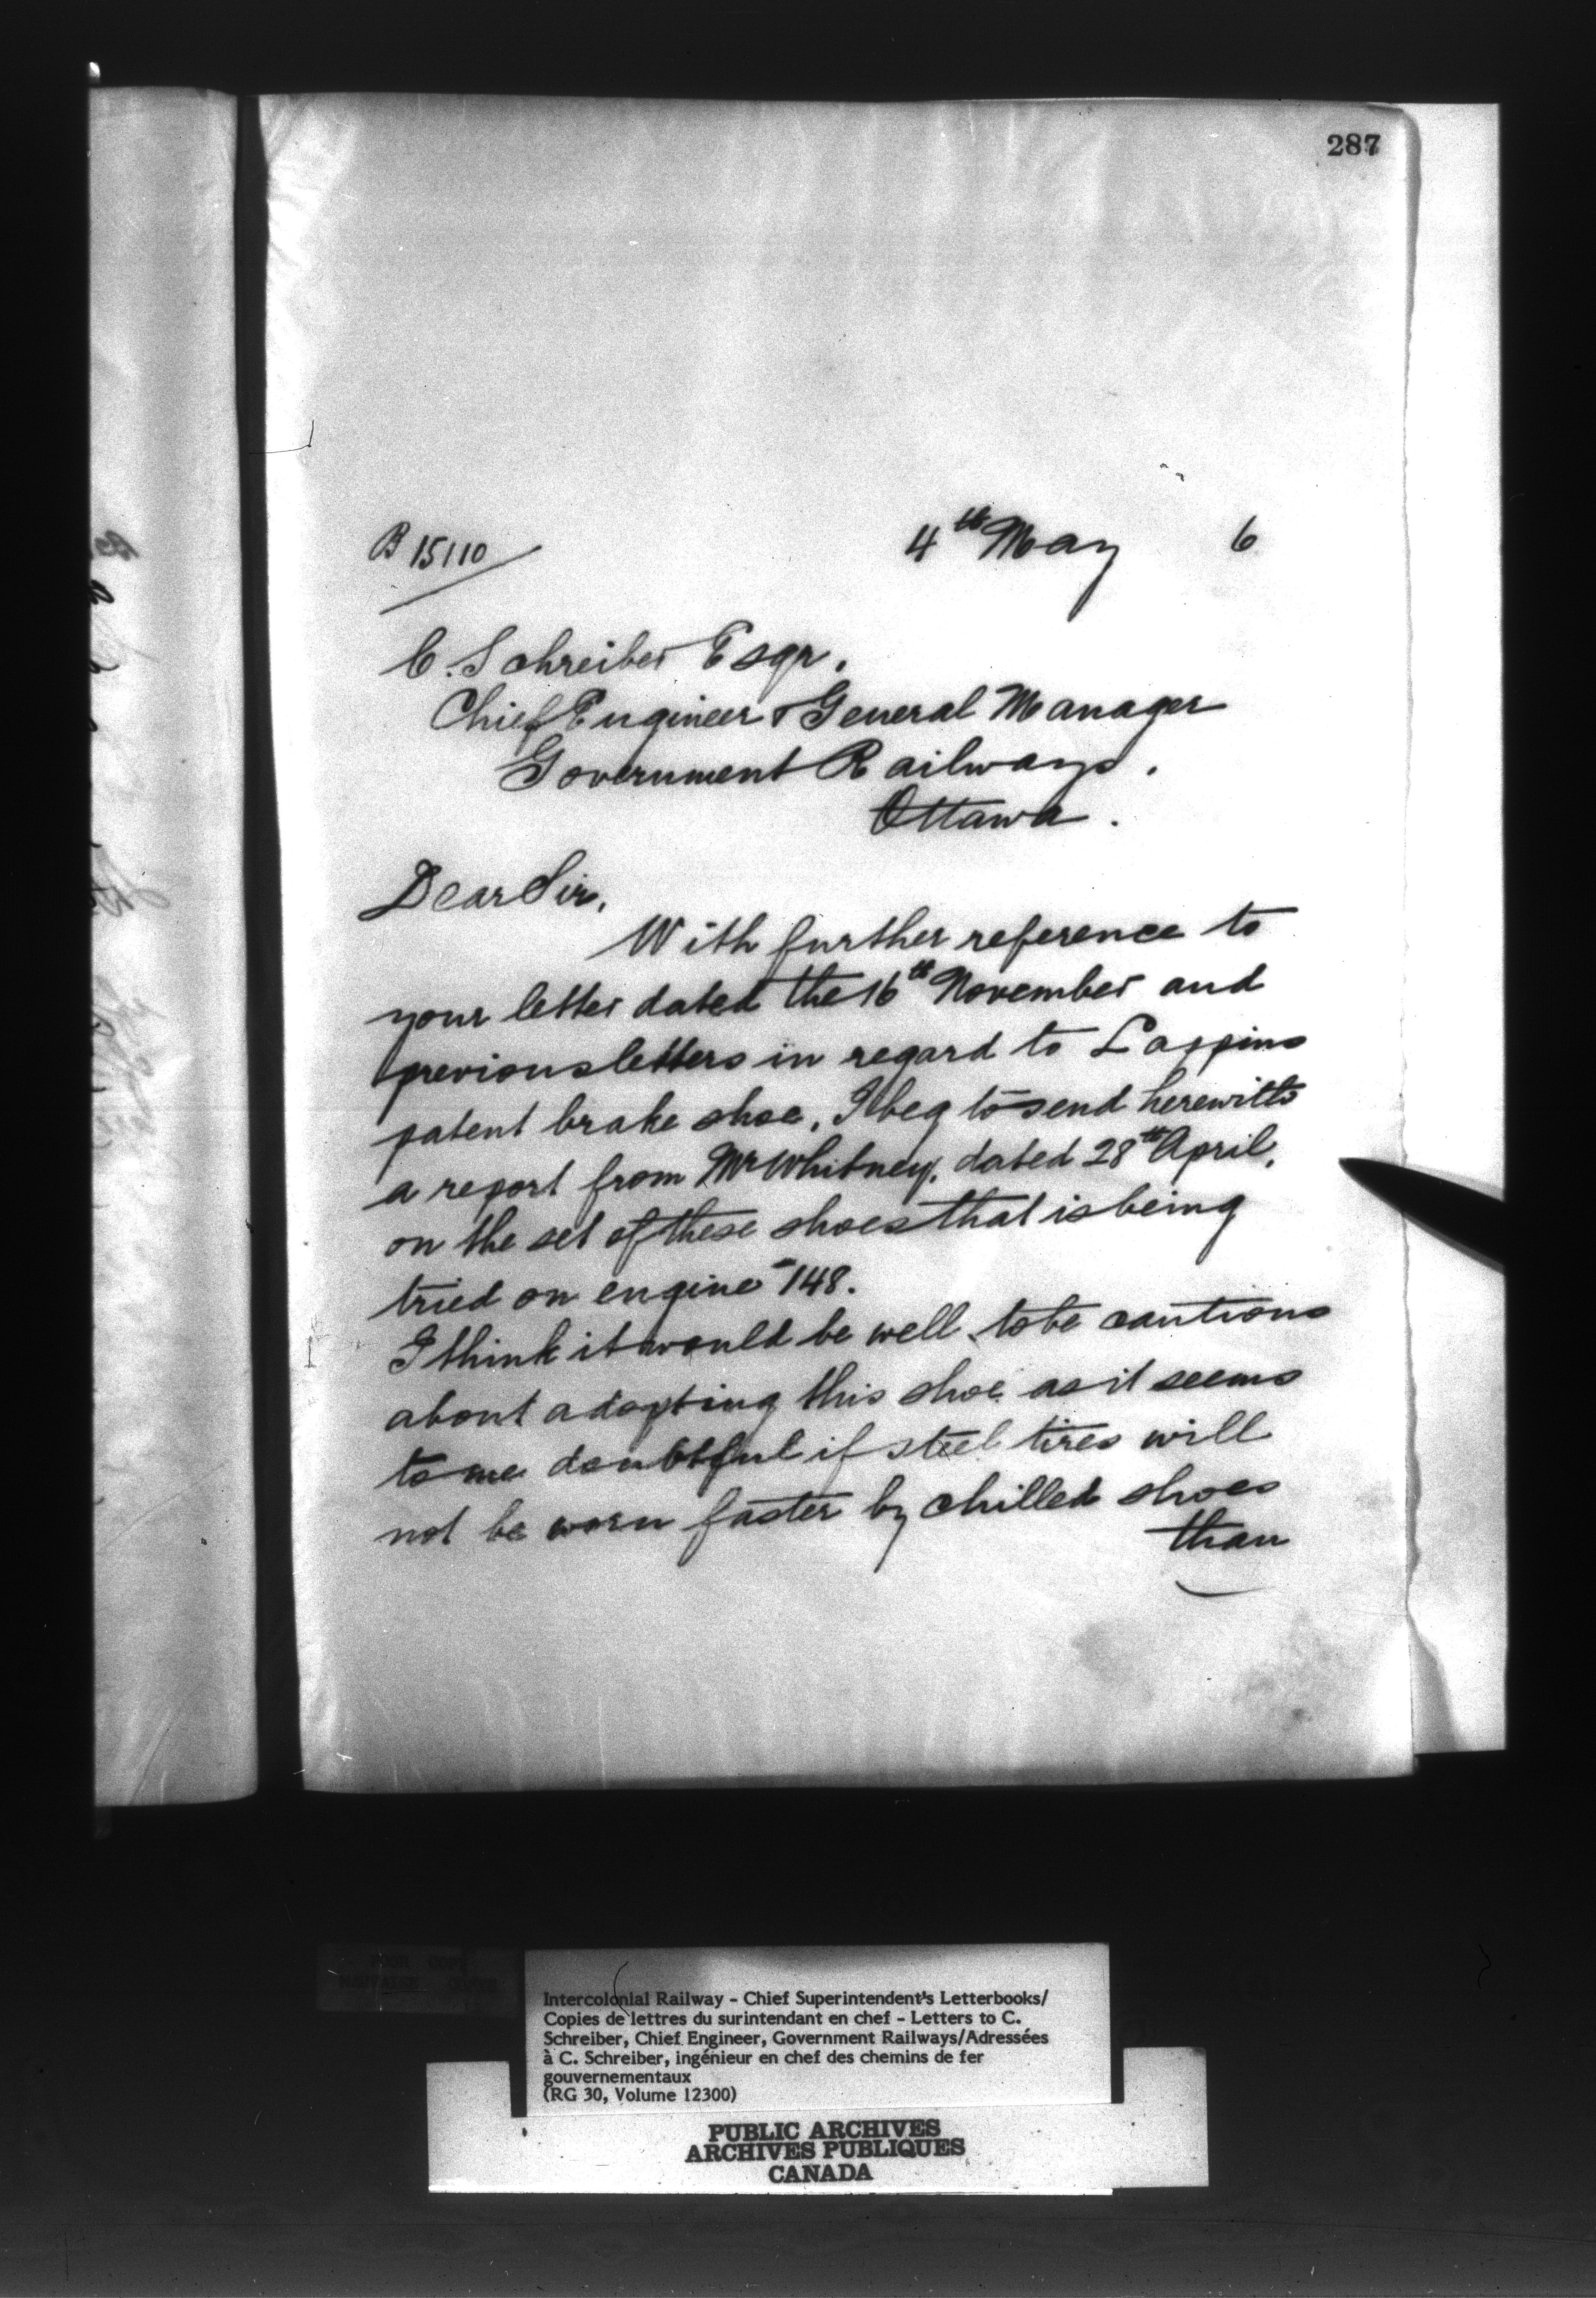 287
B 15110
4th May 6
C. Schreiber Esqr.
Chief Engineer & General Manager
Government Railways.
Ottawa.
Dear Sir,
With further reference to
your letter dated the 16th November and
previous letters in regard to Lappins
patent brake shoe, I beg to send herewith
a report from Mr Whitney, dated 28th April,
on the set of these shoes that is being
tried on engine 148.
I think it would be well to be cautious
about adopting this shoe as it seems
to me doubtful if steel tires will
not be worn faster by chilled shoes
than
Intercolonial Railway - Chief Superintendent's Letterbooks/
Copies de lettres du surintendant en chef - Letters to C.
Schreiber, Chief Engineer, Government Railways/Adressées
à C. Schreiber, ingénieur en chef des chemins de fer
gouvernementaux
(RG 30, Volume 12300)
PUBLIC ARCHIVES
ARCHIVES PUBLIQUES
CANADA